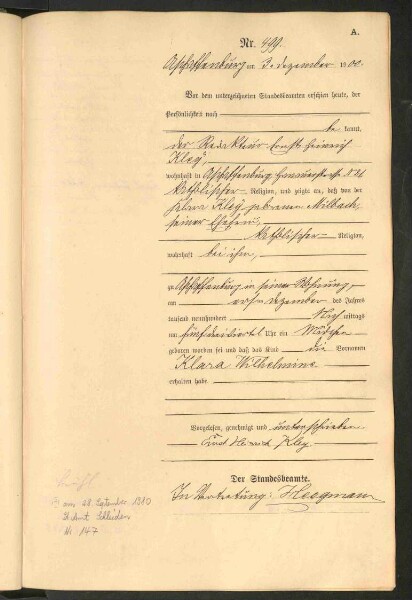 A.
Nr. 499.
Aschaffenburg am 3. Dezember 1900.
Vor dem unterzeichneten Standesbeamten erschien heute, der
Persönlichkeit nach
be kannt,
der Redakteur Ernst Heinrich
Kley,
wohnhaft in Aschaffenburg
katholischer Religion, und zeigte an, daß von der
Klara Kley geborenen Milbach,
seiner Ehefrau,
katholischer Religion,
wohnhaft bei ihm,
zu Aschaffenburg in seiner Wohnung,
am ersten Dezember des Jahres
tausend neunhundert Nachmittags
um fünf dreiviertel Uhr ein Mädchen
geboren worden sei und daß das Kind die Vornamen
Klara Wilhelmine
erhalten habe
Vorgelesen, genehmigt und unterschrieben
Ernst Heinrich Kley
Der Standesbeamte.
In Vertretung:
am 28. September 1980
Schleiden
Nr. 147